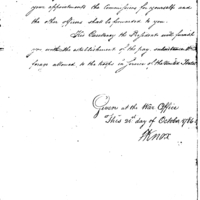 your appointments the Commissions for yourself and
the other officers shall be forwarded to you.
The Secretary at
will furnish
you with the establishment of the pay, subsistence &
forage allowed to the troops in service of the United States
Given at the War Office
this 31st day of October 1786
HKnox